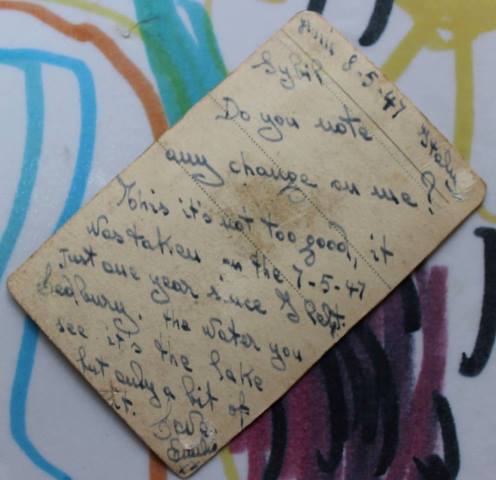 8-5-47 Italy
Sybil
Do you note
any change on me?
This it's not too good, it
was taken on the 7-5-47
just one year since I left
Ledbury. the water you
see it's the lake
but only a bit of
it. Love
Emilio
xx